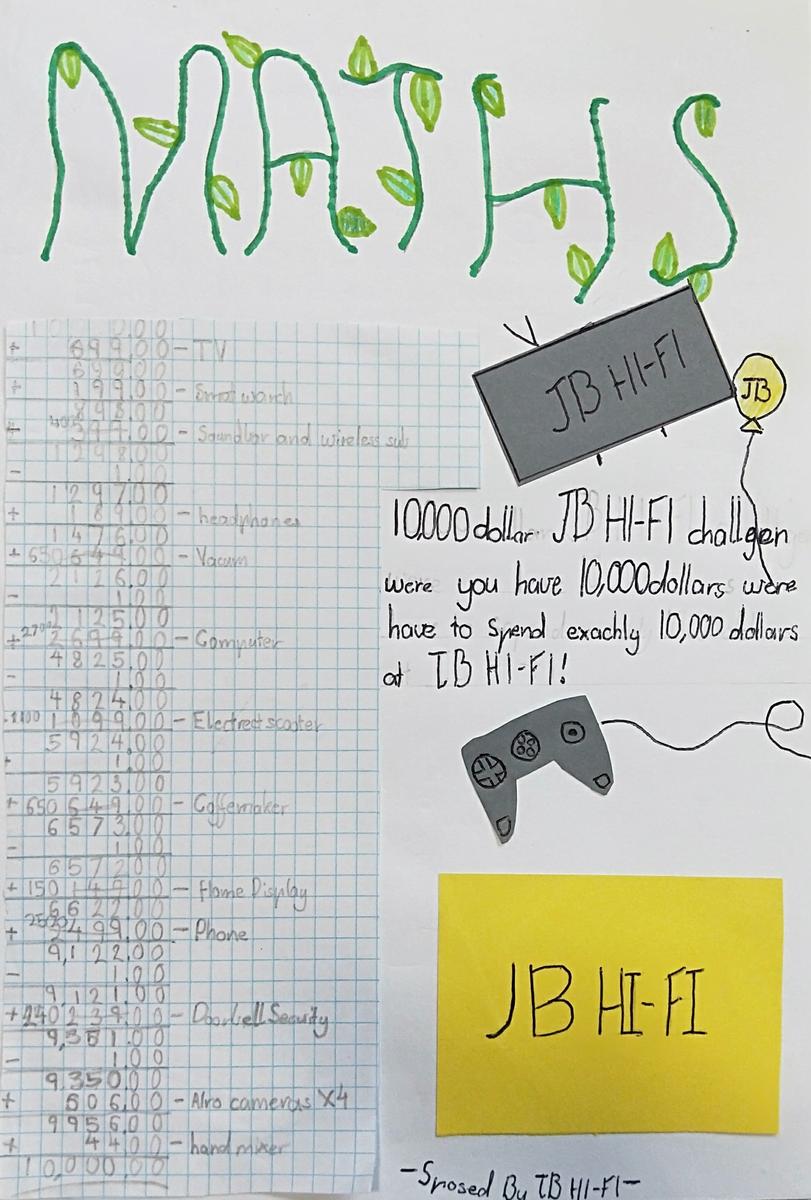 MATHS
+ 699.00 - TV
699.00
+ 199.00 - Smatwarch
898.00
400
Soundbar and wireless sub
1298.00
- 1.00
1297.00
+ 189.00 - headphones
1476.00
+ 650 649.00 - Vacum
2126.00
- 1.00
2125.00
+ 2700 2699.00 - Computer
4825.00
- 1.00
4824.00
1100 1099.00 - Electrectscooter
5924.00
1.00
5923.00
+ 650 649.00 - Coffemaker
6573.00
- 1.00
6572.00
+ 150 149.00 - Flame Display
6622.00
+ 2500 2499.00 - Phone
9,122.00
- 1.00
9121.00
+ 240 239.00 - Doorbell Security
9,361.00
- 1.00
9.350.00
+ 606.00 - Alro cameras X4
9956.00
+ 44.00 - hand mixer
10,000.00
JB HI-FI
JB
10,000 dollar JB HI-FI challgen
were you have 10,000 dollars were
have to spend exachly 10,000 dollars
at JB HI-FI!
JB HI-FI
-Sposed By JB HI-FI-